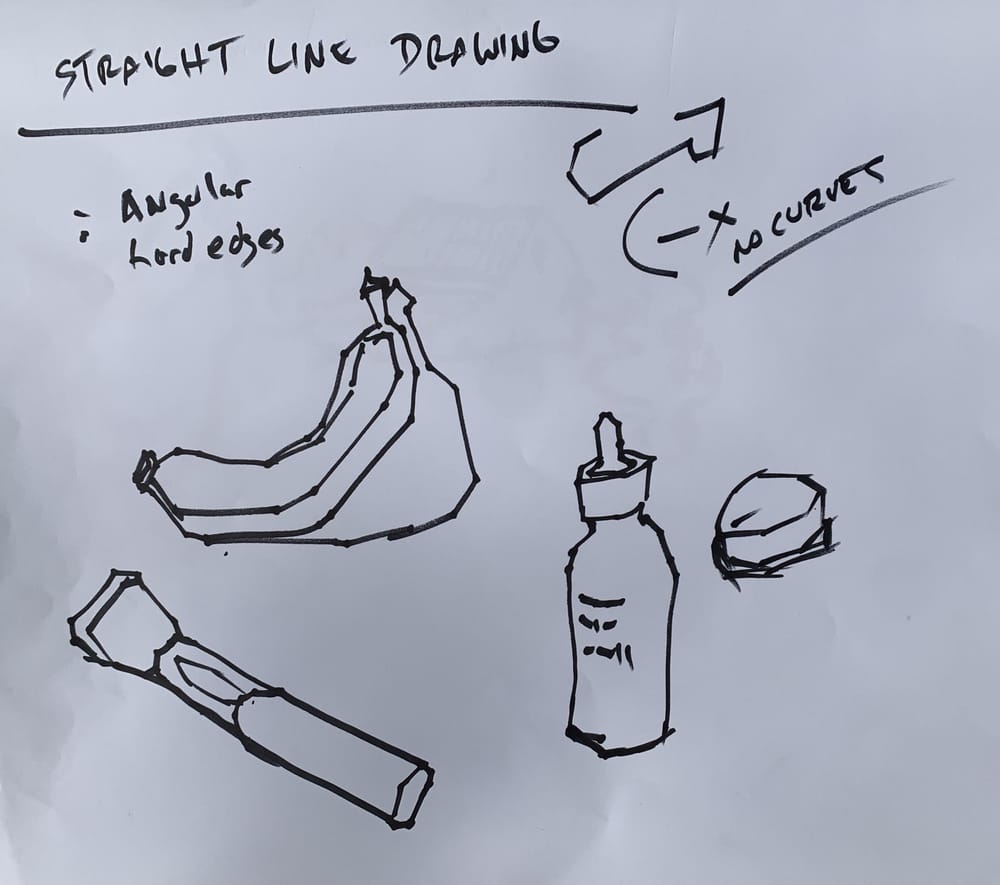 STRAIGHT LINE DRAWING
: Angular
hard edges
- X
NO CURVES